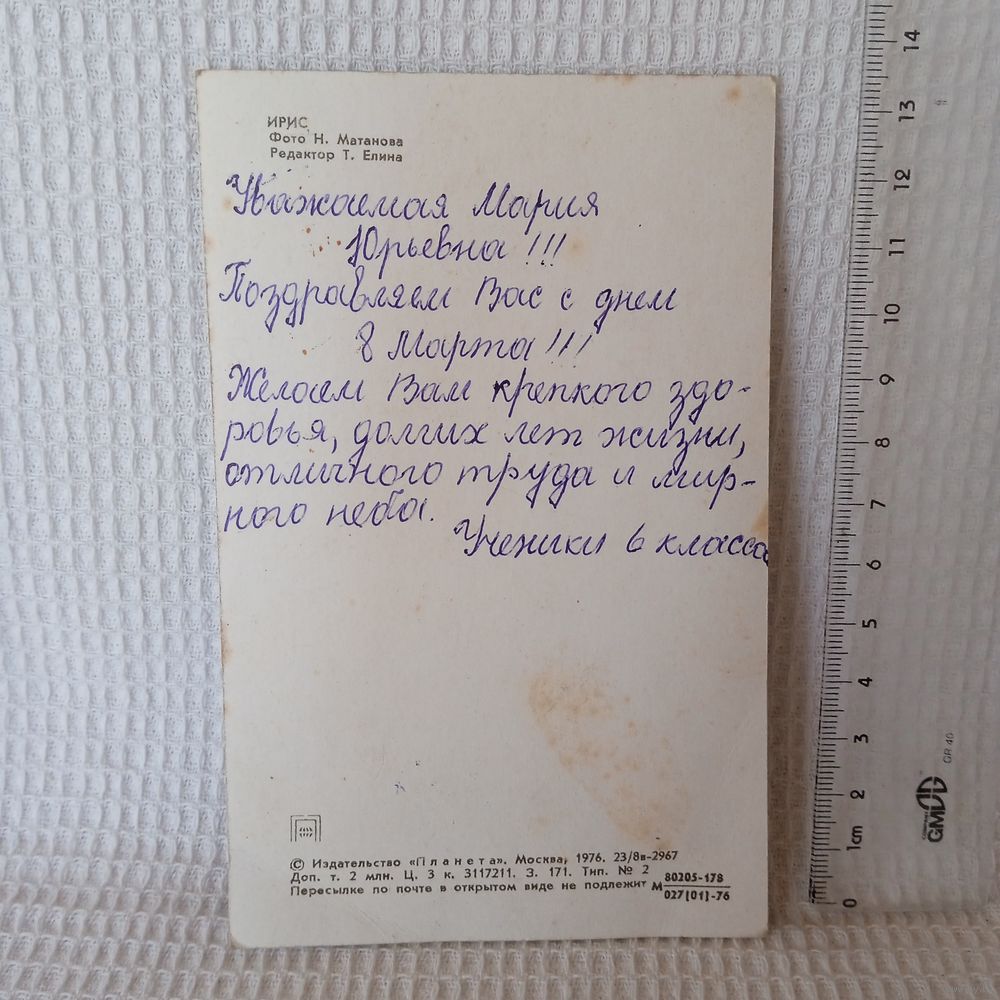 ИРИС
Фото Н. Матанова
Редактор Т. Елина
Уважаемая Мария
Юрьевна!!!
Поздравляем Вас с днем
8 Марта!!!
Желаем Вам крепкого здо-
ровья, долгих лет жизни,
отличного труда и мир-
ного неба.
Ученики 6 класса
© Издательство «Планета». Москва, 1976. 23/8в-2967
Доп. т. 2 млн. Ц. 3 к. 3117211. З. 171. Тип. № 2
Пересылке по почте в открытом виде не подлежит М 80205-178
027[01]-76
14
13
12
11
10
9
8
7
6
5
4
3
2
1cm
0
GR 40
GMDG